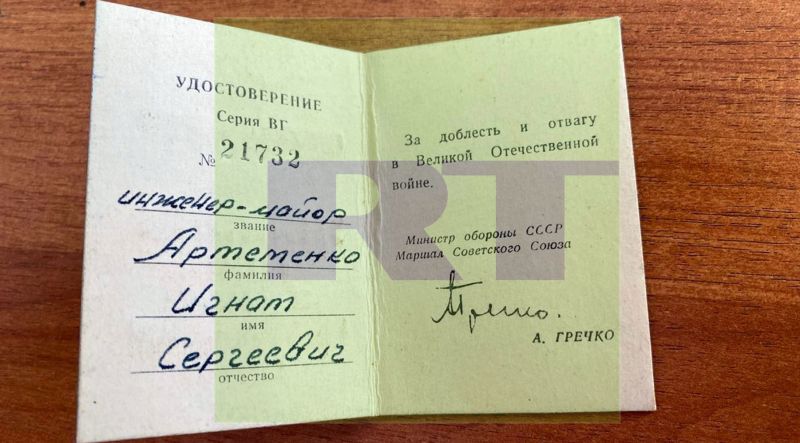 УДОСТОВЕРЕНИЕ
Серия ВГ
№ 21732
инженер-майор
звание
Артеменко
фамилия
Игнат
имя
Сергеевич
отчество
За доблесть и отвагу
в Великой Отечественной
войне.
Министр обороны СССР
Маршал Советского Союза
Гречко.
А. ГРЕЧКО
RT